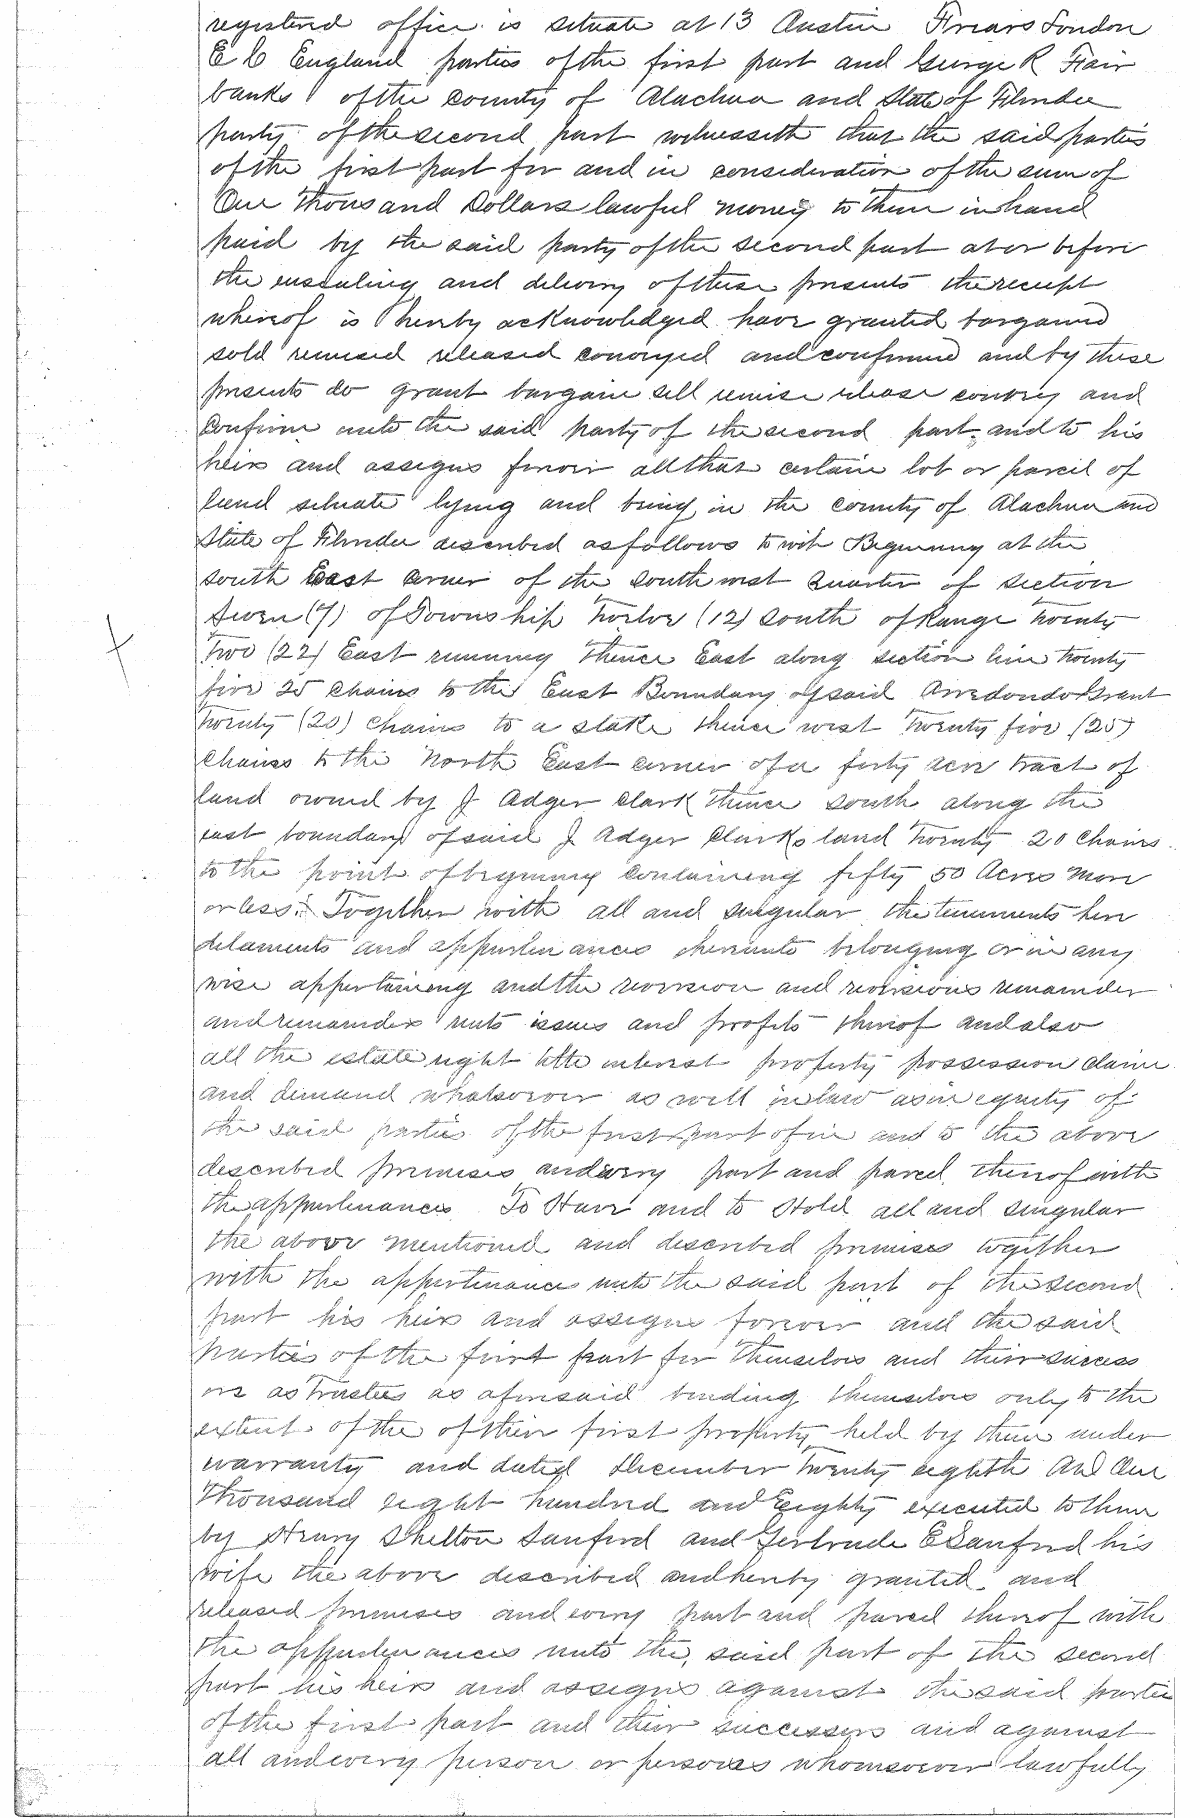 registered office is situate at 13 Austin Friars London
E C England parties of the first part and George R Fair
banks of the county of Alachua and State of Florida
party of the second part witnesseth that the said parties
of the first part for and in consideration of the sum of
One thousand Dollars lawful money to them in hand
paid by the said party of the second part at or before
the ensealing and delivery of these presents the receipt
whereof is hereby acknowledged have granted bargained
sold remised released conveyed and confirmed and by these
presents do grant bargain sell remise release convey and
confirm unto the said party of the second part and to his
heirs and assigns forever all that certain lot or parcel of
land situate lying and being in the county of Alachua and
State of Florida described as follows to wit Beginning at the
south East corner of the south west quarter of section
Seven (7) of Township Twelve (12) south of Range Twenty
Two (22) East running thence East along section line twenty
five 25 chains to the East Boundary of said Arredondo Grant
Twenty (20) chains to a stake thence west Twenty five (25)
chains to the North East corner of a forty acre tract of
land owned by J Adger Clark thence south along the
east boundary of said J Adger Clarks land Twenty 20 chains
to the point of beginning containing fifty 50 Acres more
or less. Together with all and singular the tenements here
ditaments and appurtenances thereunto belonging or in any
wise appertaining and the reversion and reversions remainder
and remainders rents issues and profits thereof and also
all the estate right title interest property possession claim
and demand whatsoever as well in law as in equity of
the said parties of the first part of in and to the above
described premises and every part and parcel thereof with
the appurtenances To Have and to Hold all and singular
the above mentioned and described premises together
with the appurtenances unto the said part of the second
part his heirs and assigns forever and the said
parties of the first part for themselves and their success
ors as Trustees as aforesaid binding themselves only to the
extent of the of their first property held by them under
warranty and dated December Twenty eighth AD One
Thousand eight hundred and Eighty executed to them
by Henry Shelton Sanford and Gertrude E Sanford his
wife the above described and hereby granted and
released premises and every part and parcel thereof with
the appurtenances unto the said part of the second
part his heirs and assigns against the said parties
of the first part and their successors and against
all and every person or persons whomsoever lawfully